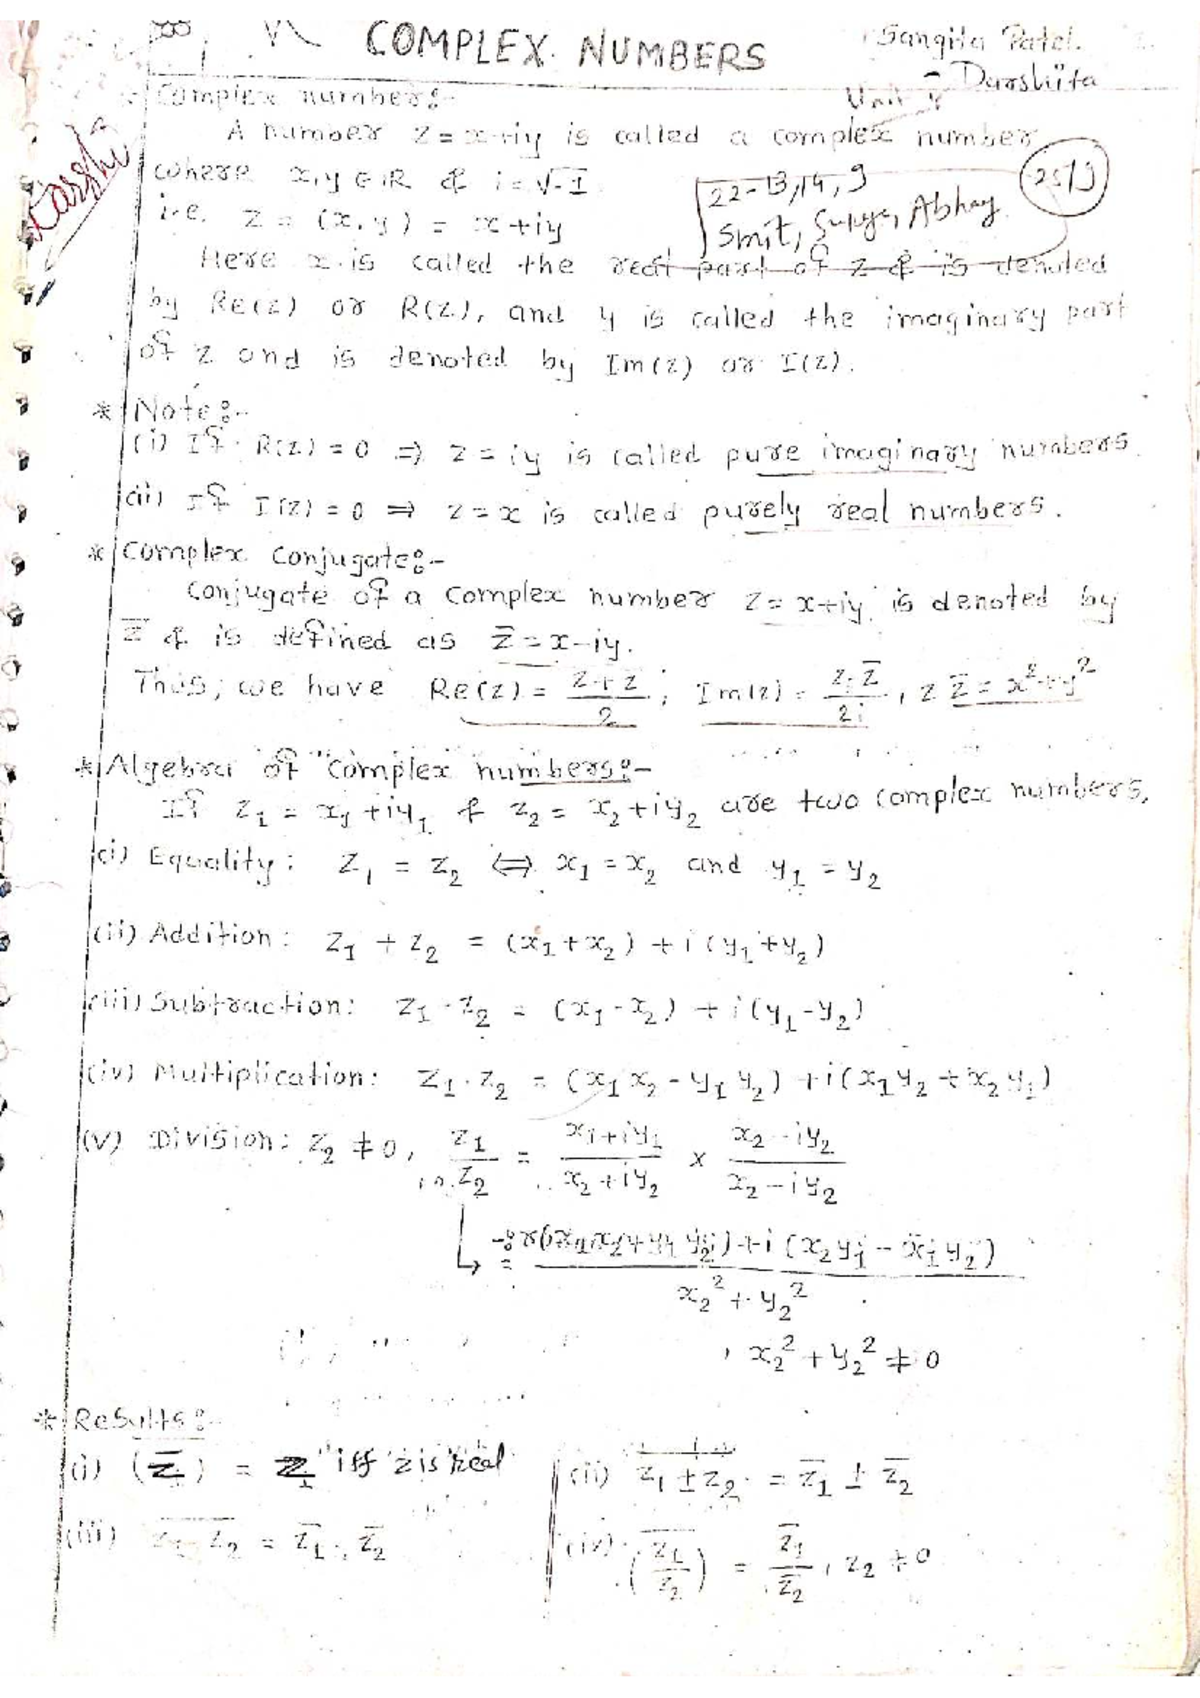 COMPLEX NUMBERS
Sangita Patel.
Darshita
Unit
Complex numbers:-
A number z = x+iy is called a complex number
where x,y ∈ IR & i = √-1
22-13,14,9
Smit, Surya, Abhay
i.e. z = (x,y) = x+iy
Here x is called the real part of z & is denoted
by Re(z) or R(z), and y is called the imaginary part
of z and is denoted by Im(z) or I(z).
* Note:-
(i) If R(z) = 0 ⇒ z = iy is called pure imaginary numbers
(ii) If I(z) = 0 ⇒ z = x is called purely real numbers.
* Complex Conjugate:-
Conjugate of a complex number z = x+iy is denoted by
z̅ & is defined as z̅ = x-iy.
Thus, we have Re(z) = (z+z̅)/2 ; Im(z) = (z-z̅)/2i , z z̅ = x²+y²
* Algebra of complex numbers:-
If z₁ = x₁+iy₁ & z₂ = x₂+iy₂ are two complex numbers,
(i) Equality: z₁ = z₂ ⇔ x₁ = x₂ and y₁ = y₂
(ii) Addition: z₁ + z₂ = (x₁+x₂) + i(y₁+y₂)
(iii) Subtraction: z₁ - z₂ = (x₁-x₂) + i(y₁-y₂)
(iv) Multiplication: z₁·z₂ = (x₁x₂ - y₁y₂) + i(x₁y₂ + x₂y₁)
(v) Division: z₂ ≠ 0, z₁/z₂ = (x₁+iy₁)/(x₂+iy₂) × (x₂-iy₂)/(x₂-iy₂)
= ((x₁x₂+y₁y₂) + i(x₂y₁ - x₁y₂))/(x₂²+y₂²)
, x₂²+y₂² ≠ 0
* Results:-
(i) (z̅) = z iff z is real (ii) z₁ ± z₂ = z̅₁ ± z̅₂
(iii) z₁·z₂ = z̅₁·z̅₂ (iv) (z₁/z₂) = z̅₁/z̅₂ , z₂ ≠ 0